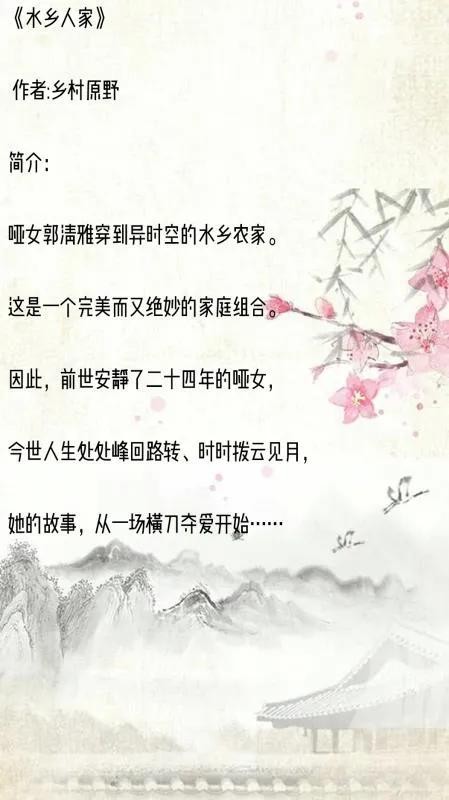 《水乡人家》
作者:乡村原野
简介:
哑女郭清雅穿到异时空的水乡农家。
这是一个完美而又绝妙的家庭组合。
因此，前世安靜了二十四年的哑女，
今世人生处处峰回路转、时时拨云见月，
她的故事，从一场橫刀夺爱开始……